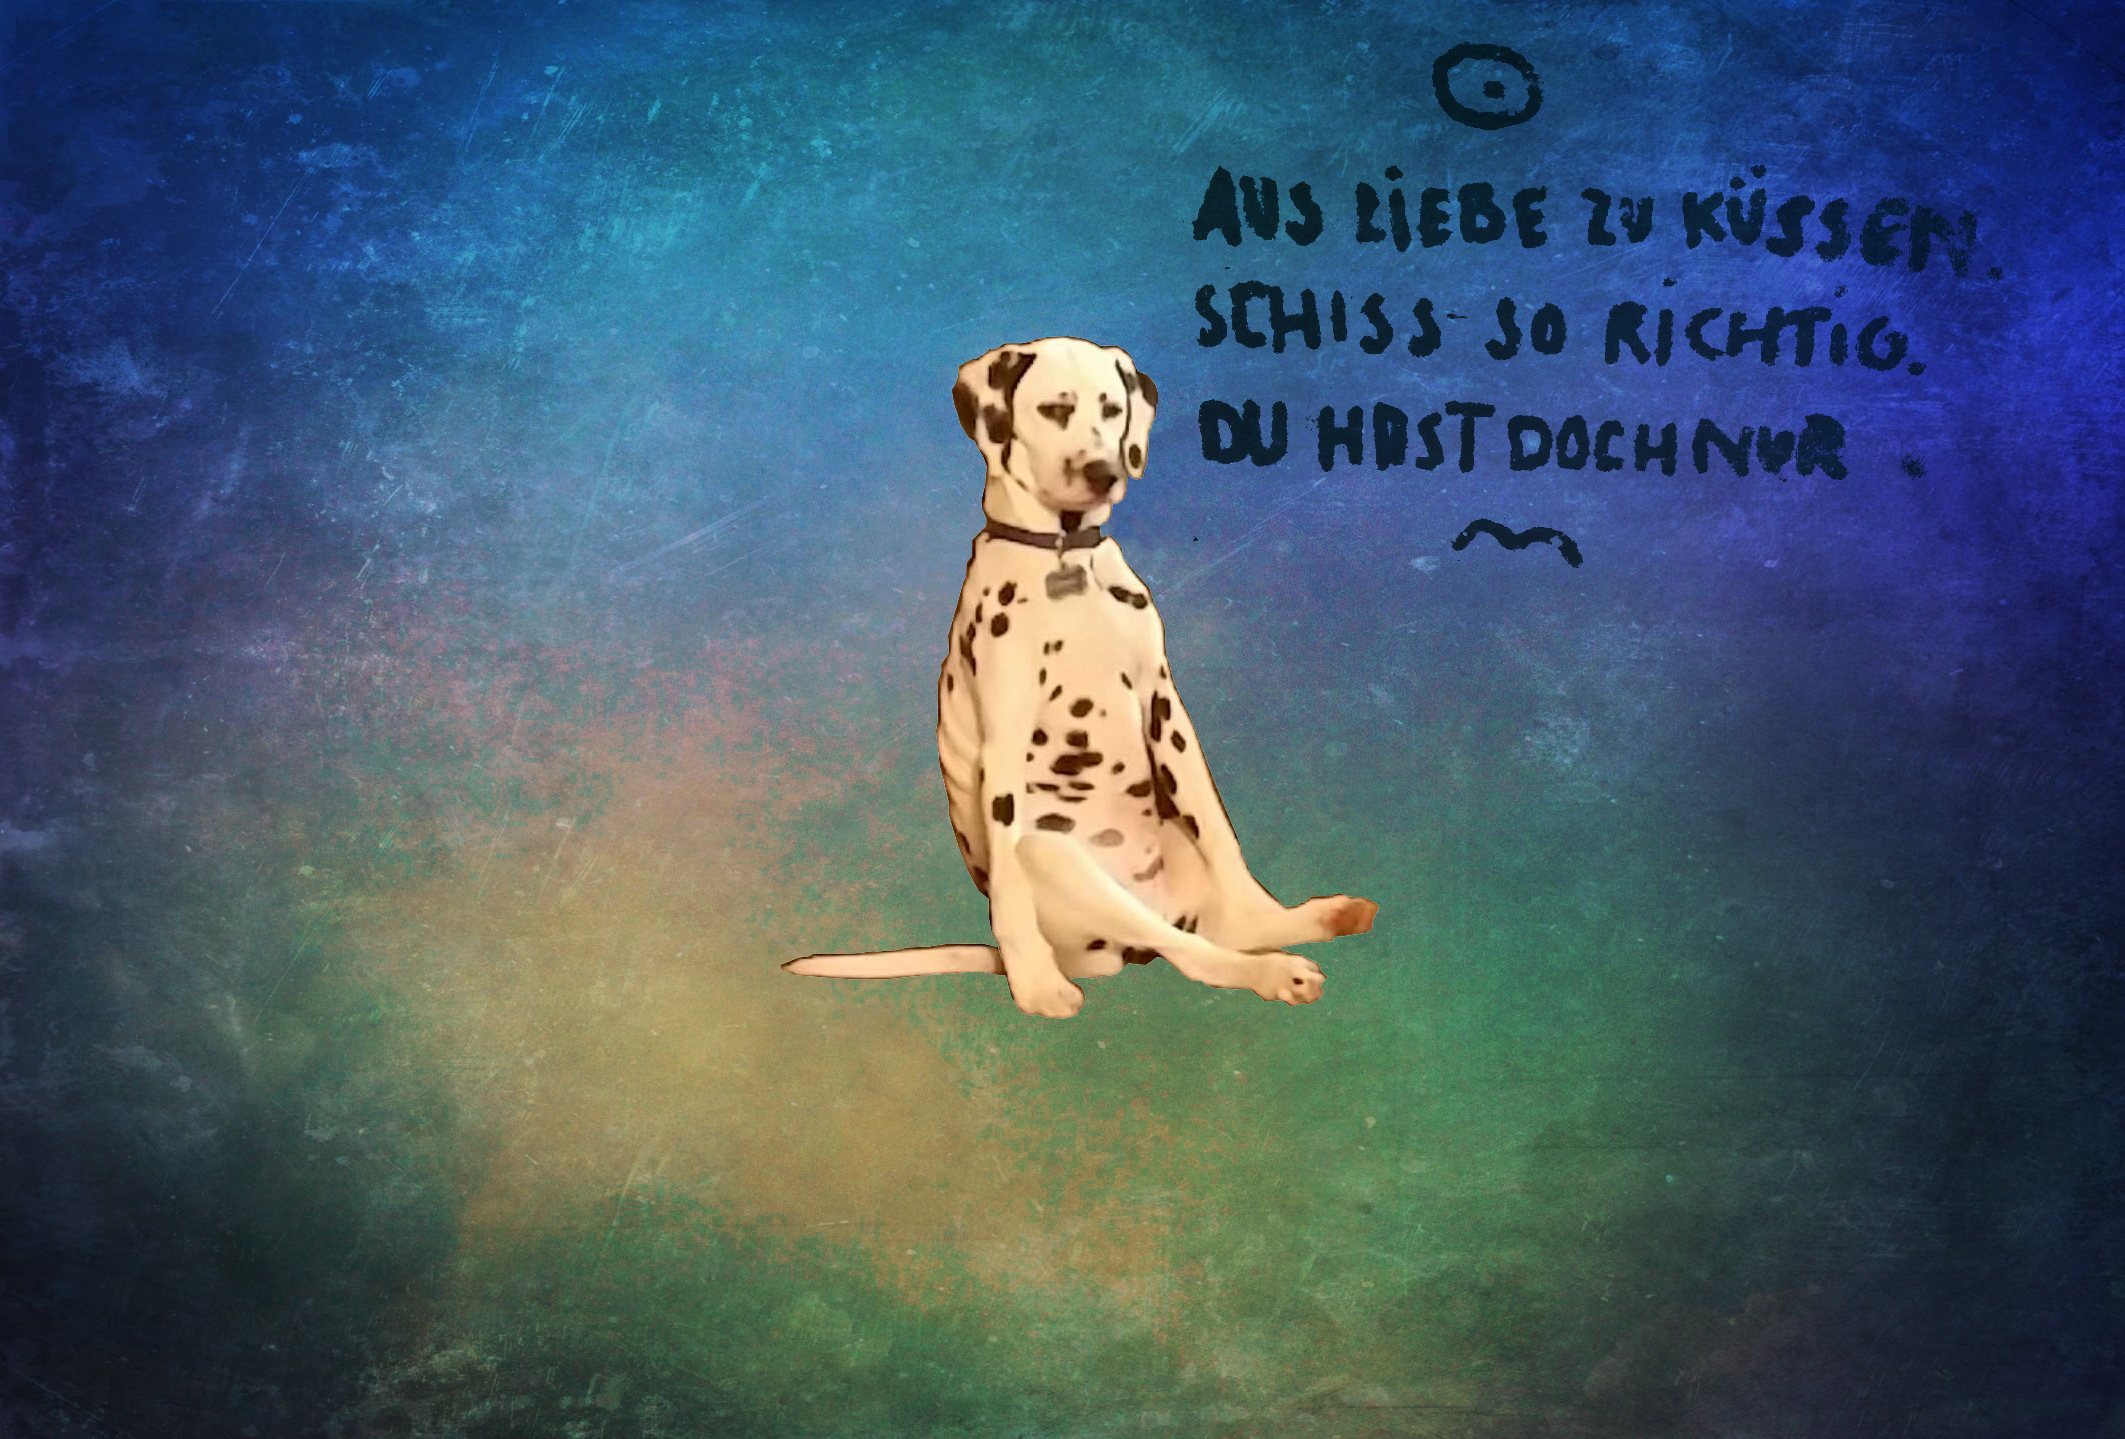 AUS LIEBE ZU KÜSSEN.
SCHISS SO RICHTIG.
DU HAST DOCH NUR